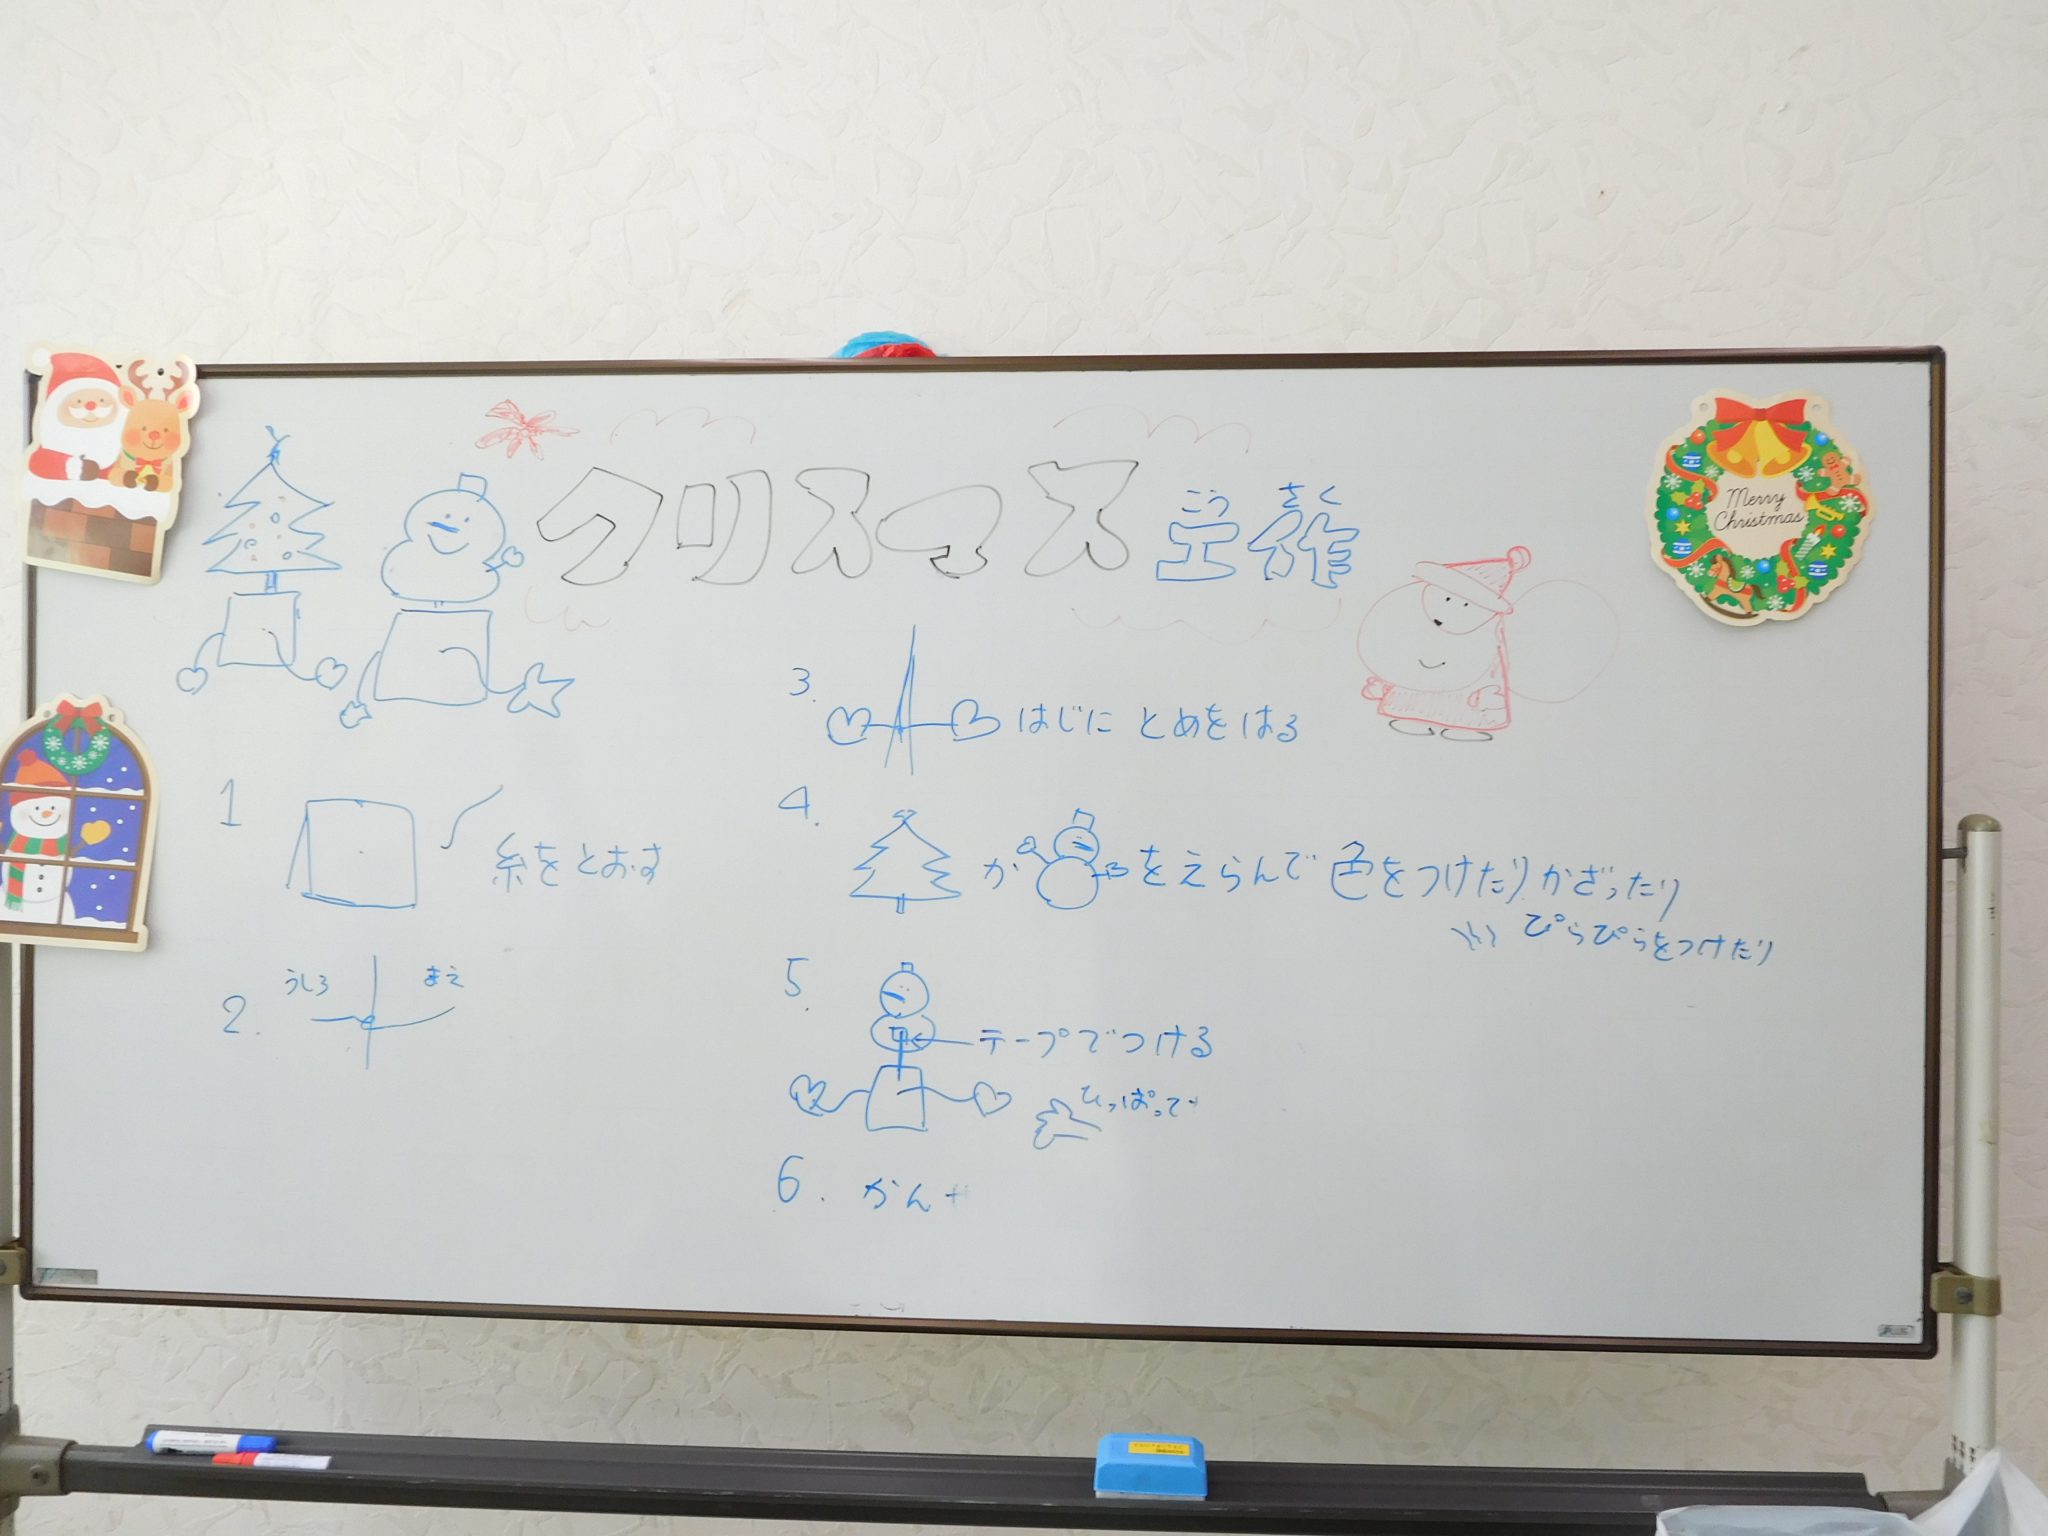 クリスマス工作
こうさく
Merry
Christmas
1
糸をとおす
2.
うしろ
まえ
3.
はじにとめをはる
4.
か
をえらんで色をつけたりかざったり
ぴらぴらをつけたり
5.
テープでつける
ひっぱって
6. かん